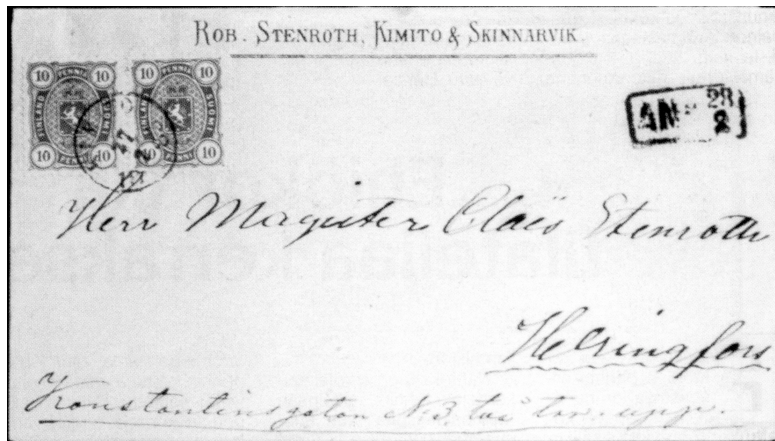 ROB. STENROTH, KIMITO & SKINNARVIK.
10 PENNIÄ 10
10 PENNIÄ 10
10 10
10 10
AN. 28
2
Herr Magister Claës Stenroth
Helsingfors
Konstantinsgatan N 3, två trap. upp.